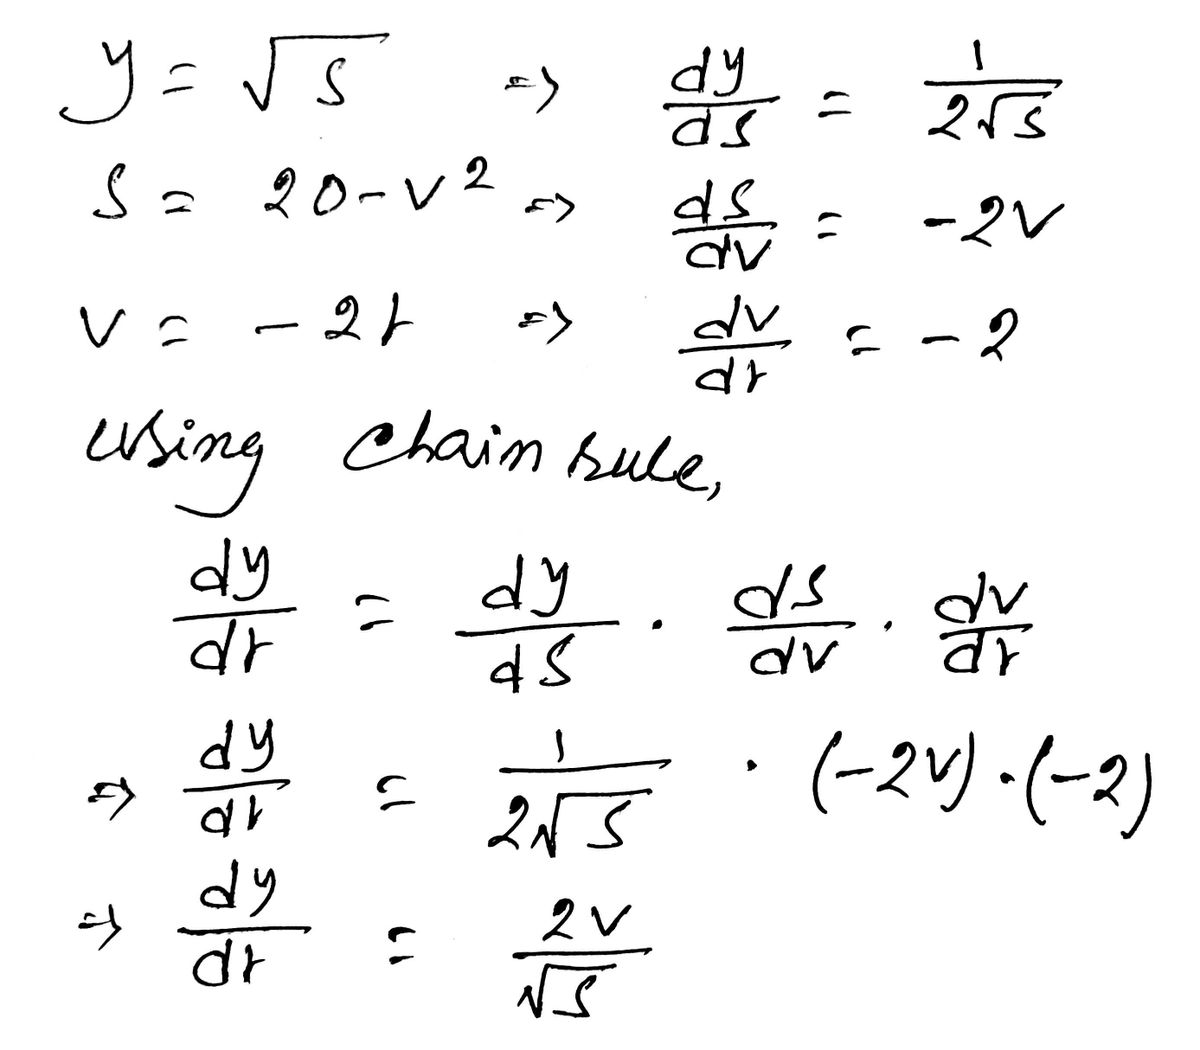 y = √s => dy/ds = 1/2√s
s = 20-v² => ds/dv = -2v
v = -2t => dv/dt = -2
using chain rule,
dy/dt = dy/ds . ds/dv . dv/dt
=> dy/dt = 1/2√s . (-2v).(-2)
=> dy/dt = 2v/√s